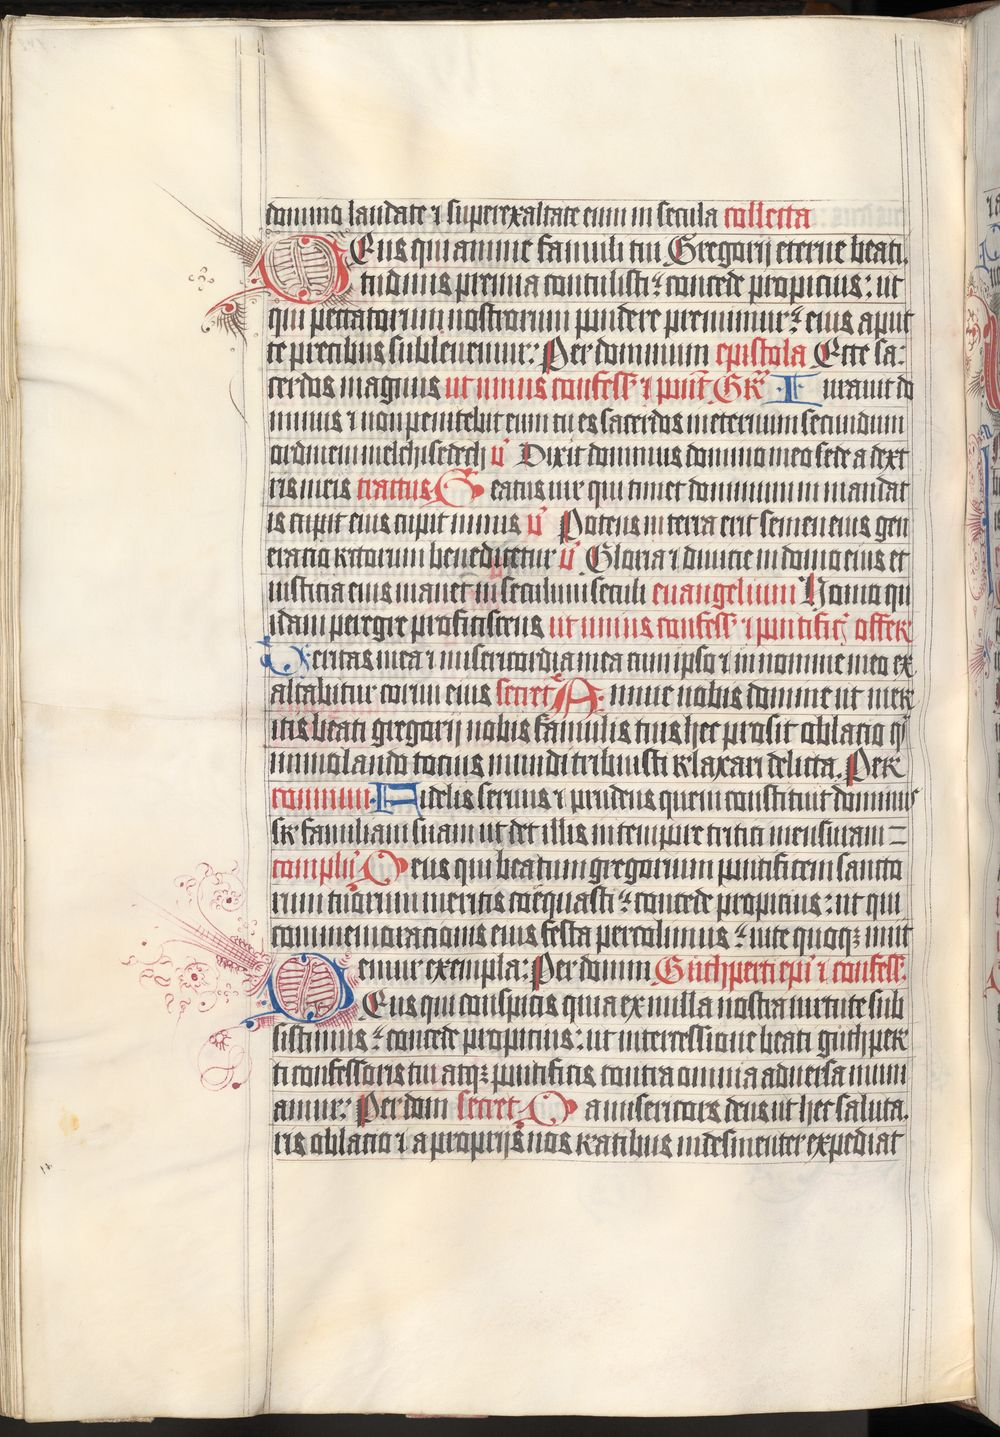 domino laudate ⁊ superexaltate eum in secula collecta
Deus qui anime famuli tui Gregorij eterne beati
tudinis premia contulisti: concede propicius: ut
qui peccatorum nostrorum pondere premimur: eius aput
te precibus subleuemur: Per dominum epistola Ecce sa:
cerdos magnus ut unius confess ⁊ pont Gr Iurauit do
minus ⁊ non penitebit eum tu es sacerdos in eternum secundum
ordinem melchisedech v Dixit dominus domino meo sede a dext
ris meis tractus Beatus uir qui timet dominum in mandat
is cupit eius cupit nimis v Potens in terra erit semen eius gen
eratio rectorum benedicetur v Gloria ⁊ diuicie in domo eius et
iusticia eius manet in seculum seculi euangelium Homo qu
idam peregre proficiscens ut unius confess ⁊ pontific offer
Veritas mea ⁊ misericordia mea cum ipso ⁊ in nomine meo ex
altabitur cornu eius secret Annue nobis domine ut mer
itis beati gregorij nobis famulis tuis hec prosit oblatio q
immolando tocius mundi tribuisti relaxari delicta. Per
commun Fidelis seruus ⁊ prudens quem constituit dominus
sr familiam suam ut det illis in tempore tritici mensuram
complu Deus qui beatum gregorium pontificem sancto
rum tuorum meritis coequasti: concede propicius: ut qui
commemorationis eius festa percolimus: uite quoqꝫ imit
emur exempla: Per domin Guthperti epi ⁊ confess.
Deus qui conspicis quia ex nulla nostra uirtute sub
sistimus: concede propicius: ut intercessione beati guthper
ti confessoris tui atqꝫ pontificis contra omnia aduersa muni
amur: Per dom secret Da misericors deus ut hec saluta.
ris oblatio ⁊ a proprijs nos reatibus indesinenter expediat